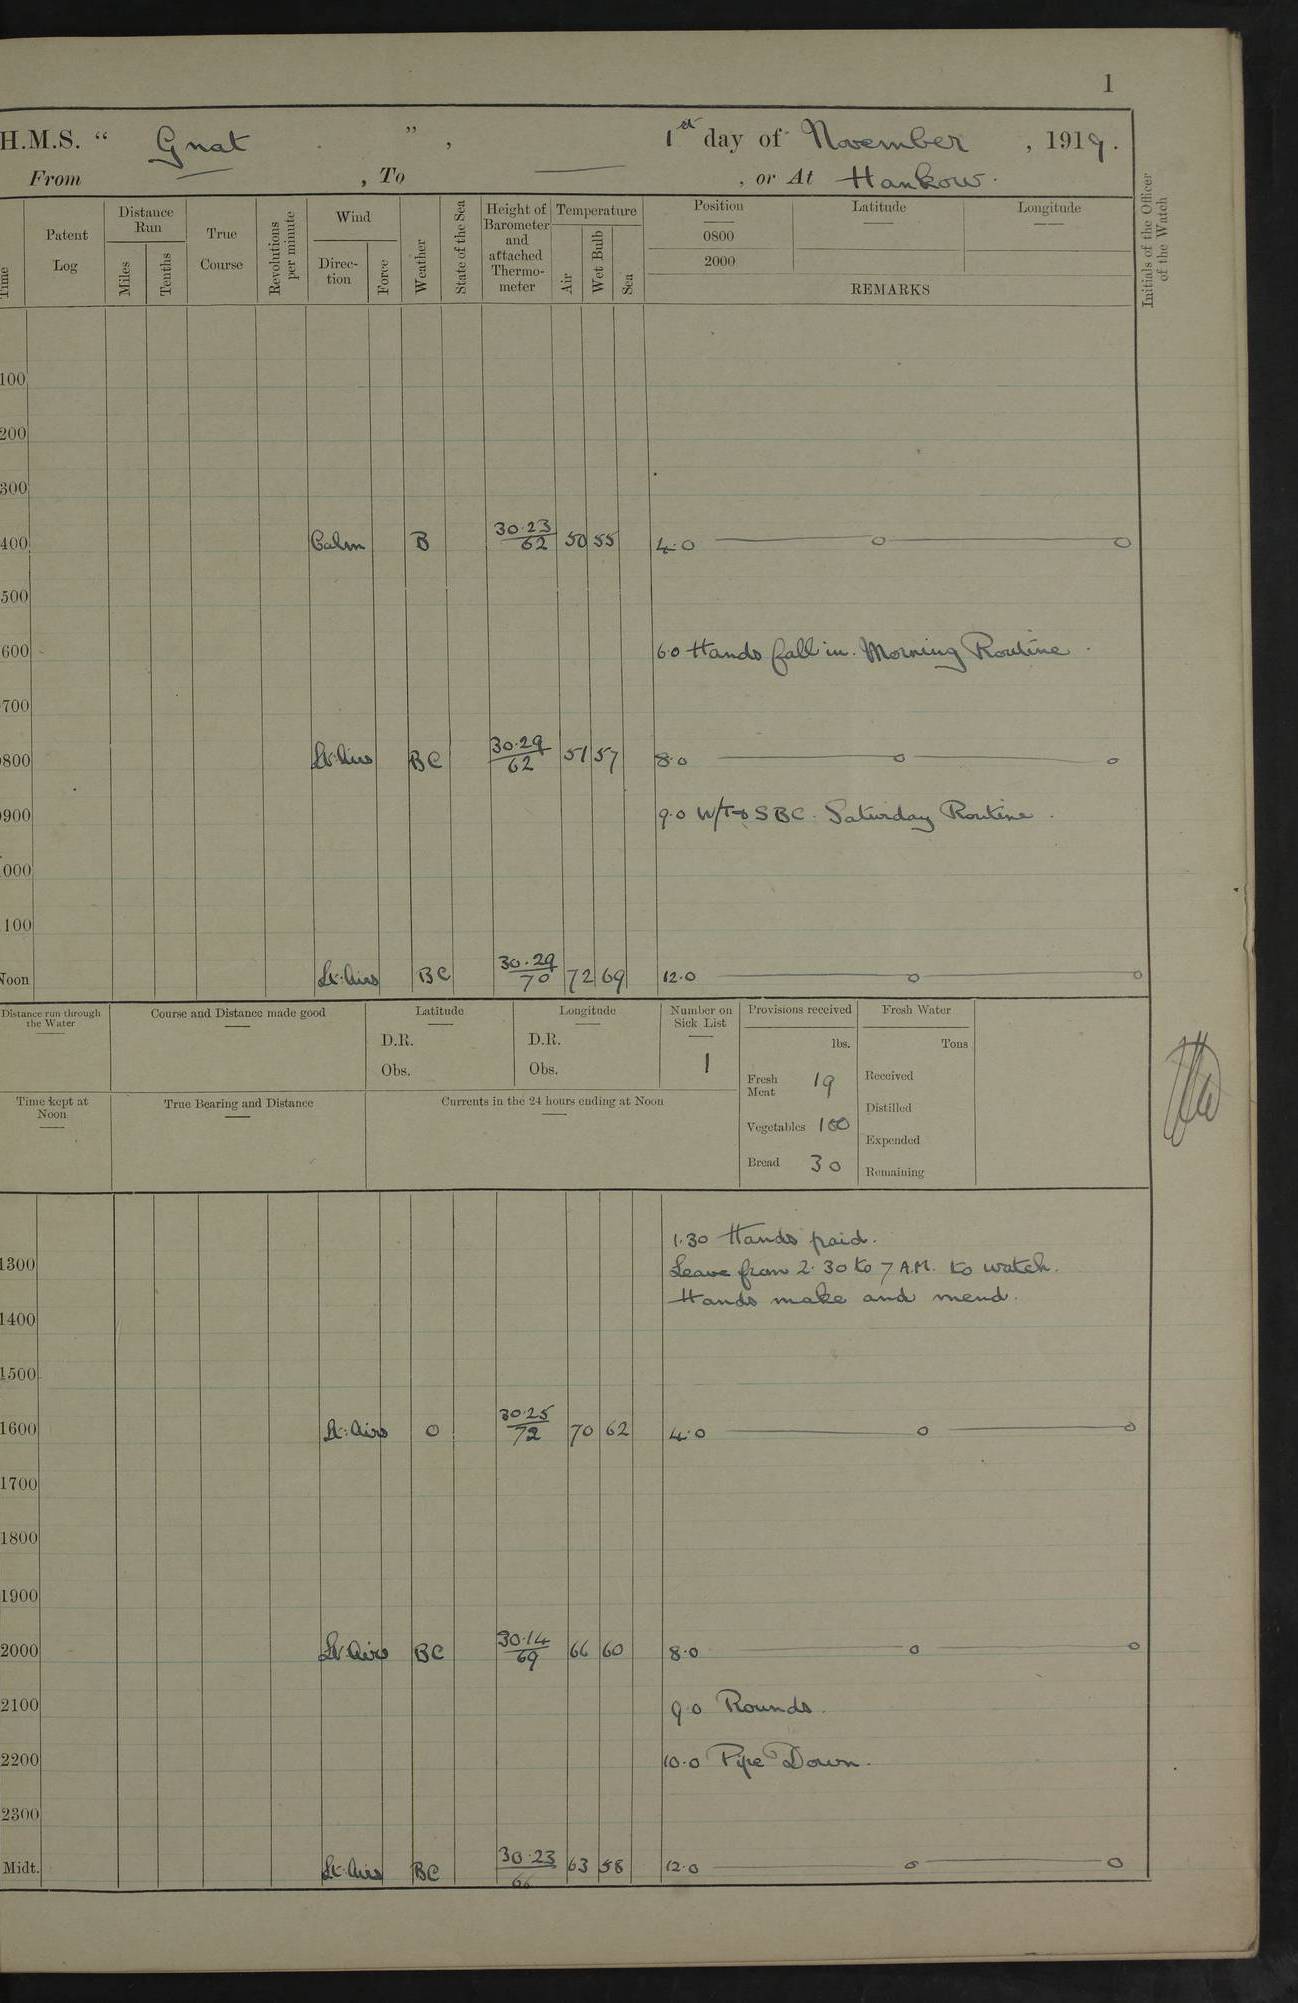 1
H.M.S. “ Gnat ”, 1st day of November, 1919.
From — , To — , or At Hankow.
Time
Patent Log
Distance Run
Miles
Tenths
True Course
Revolutions per minute
Wind
Direc-tion
Force
Weather
State of the Sea
Height of Barometer and attached Thermo-meter
Temperature
Air
Wet Bulb
Sea
Position
0800
2000
Latitude
Longitude
REMARKS
Initials of the Officer of the Watch
100
200
300
400 Calm B 30.23/62 50 55 4.0
500
600 6.0 Hands fall in. Morning Routine.
700
800 Lt. Airs BC 30.29/62 51 57 8.0
900 9.0 W/T to SBC. Saturday Routine.
000
100
Noon Lt. Airs BC 30.29/70 72 69 12.0
Distance run through the Water
Course and Distance made good
Latitude
D.R.
Obs.
Longitude
D.R.
Obs.
Number on Sick List
1
Provisions received
lbs.
Fresh Meat 19
Vegetables 100
Bread 30
Fresh Water
Tons
Received
Distilled
Expended
Remaining
Time kept at Noon
True Bearing and Distance
Currents in the 24 hours ending at Noon
1.30 Hands paid.
1300 Leave from 2.30 to 7 A.M. to watch.
Hands make and mend.
1400
1500
1600 Lt. Airs O 30.25/72 70 62 4.0
1700
1800
1900
2000 Lt. Airs BC 30.14/69 66 60 8.0
2100 9.0 Rounds.
2200 10.0 Pipe Down.
2300
Midt. Lt. Airs BC 30.23/66 63 58 12.0